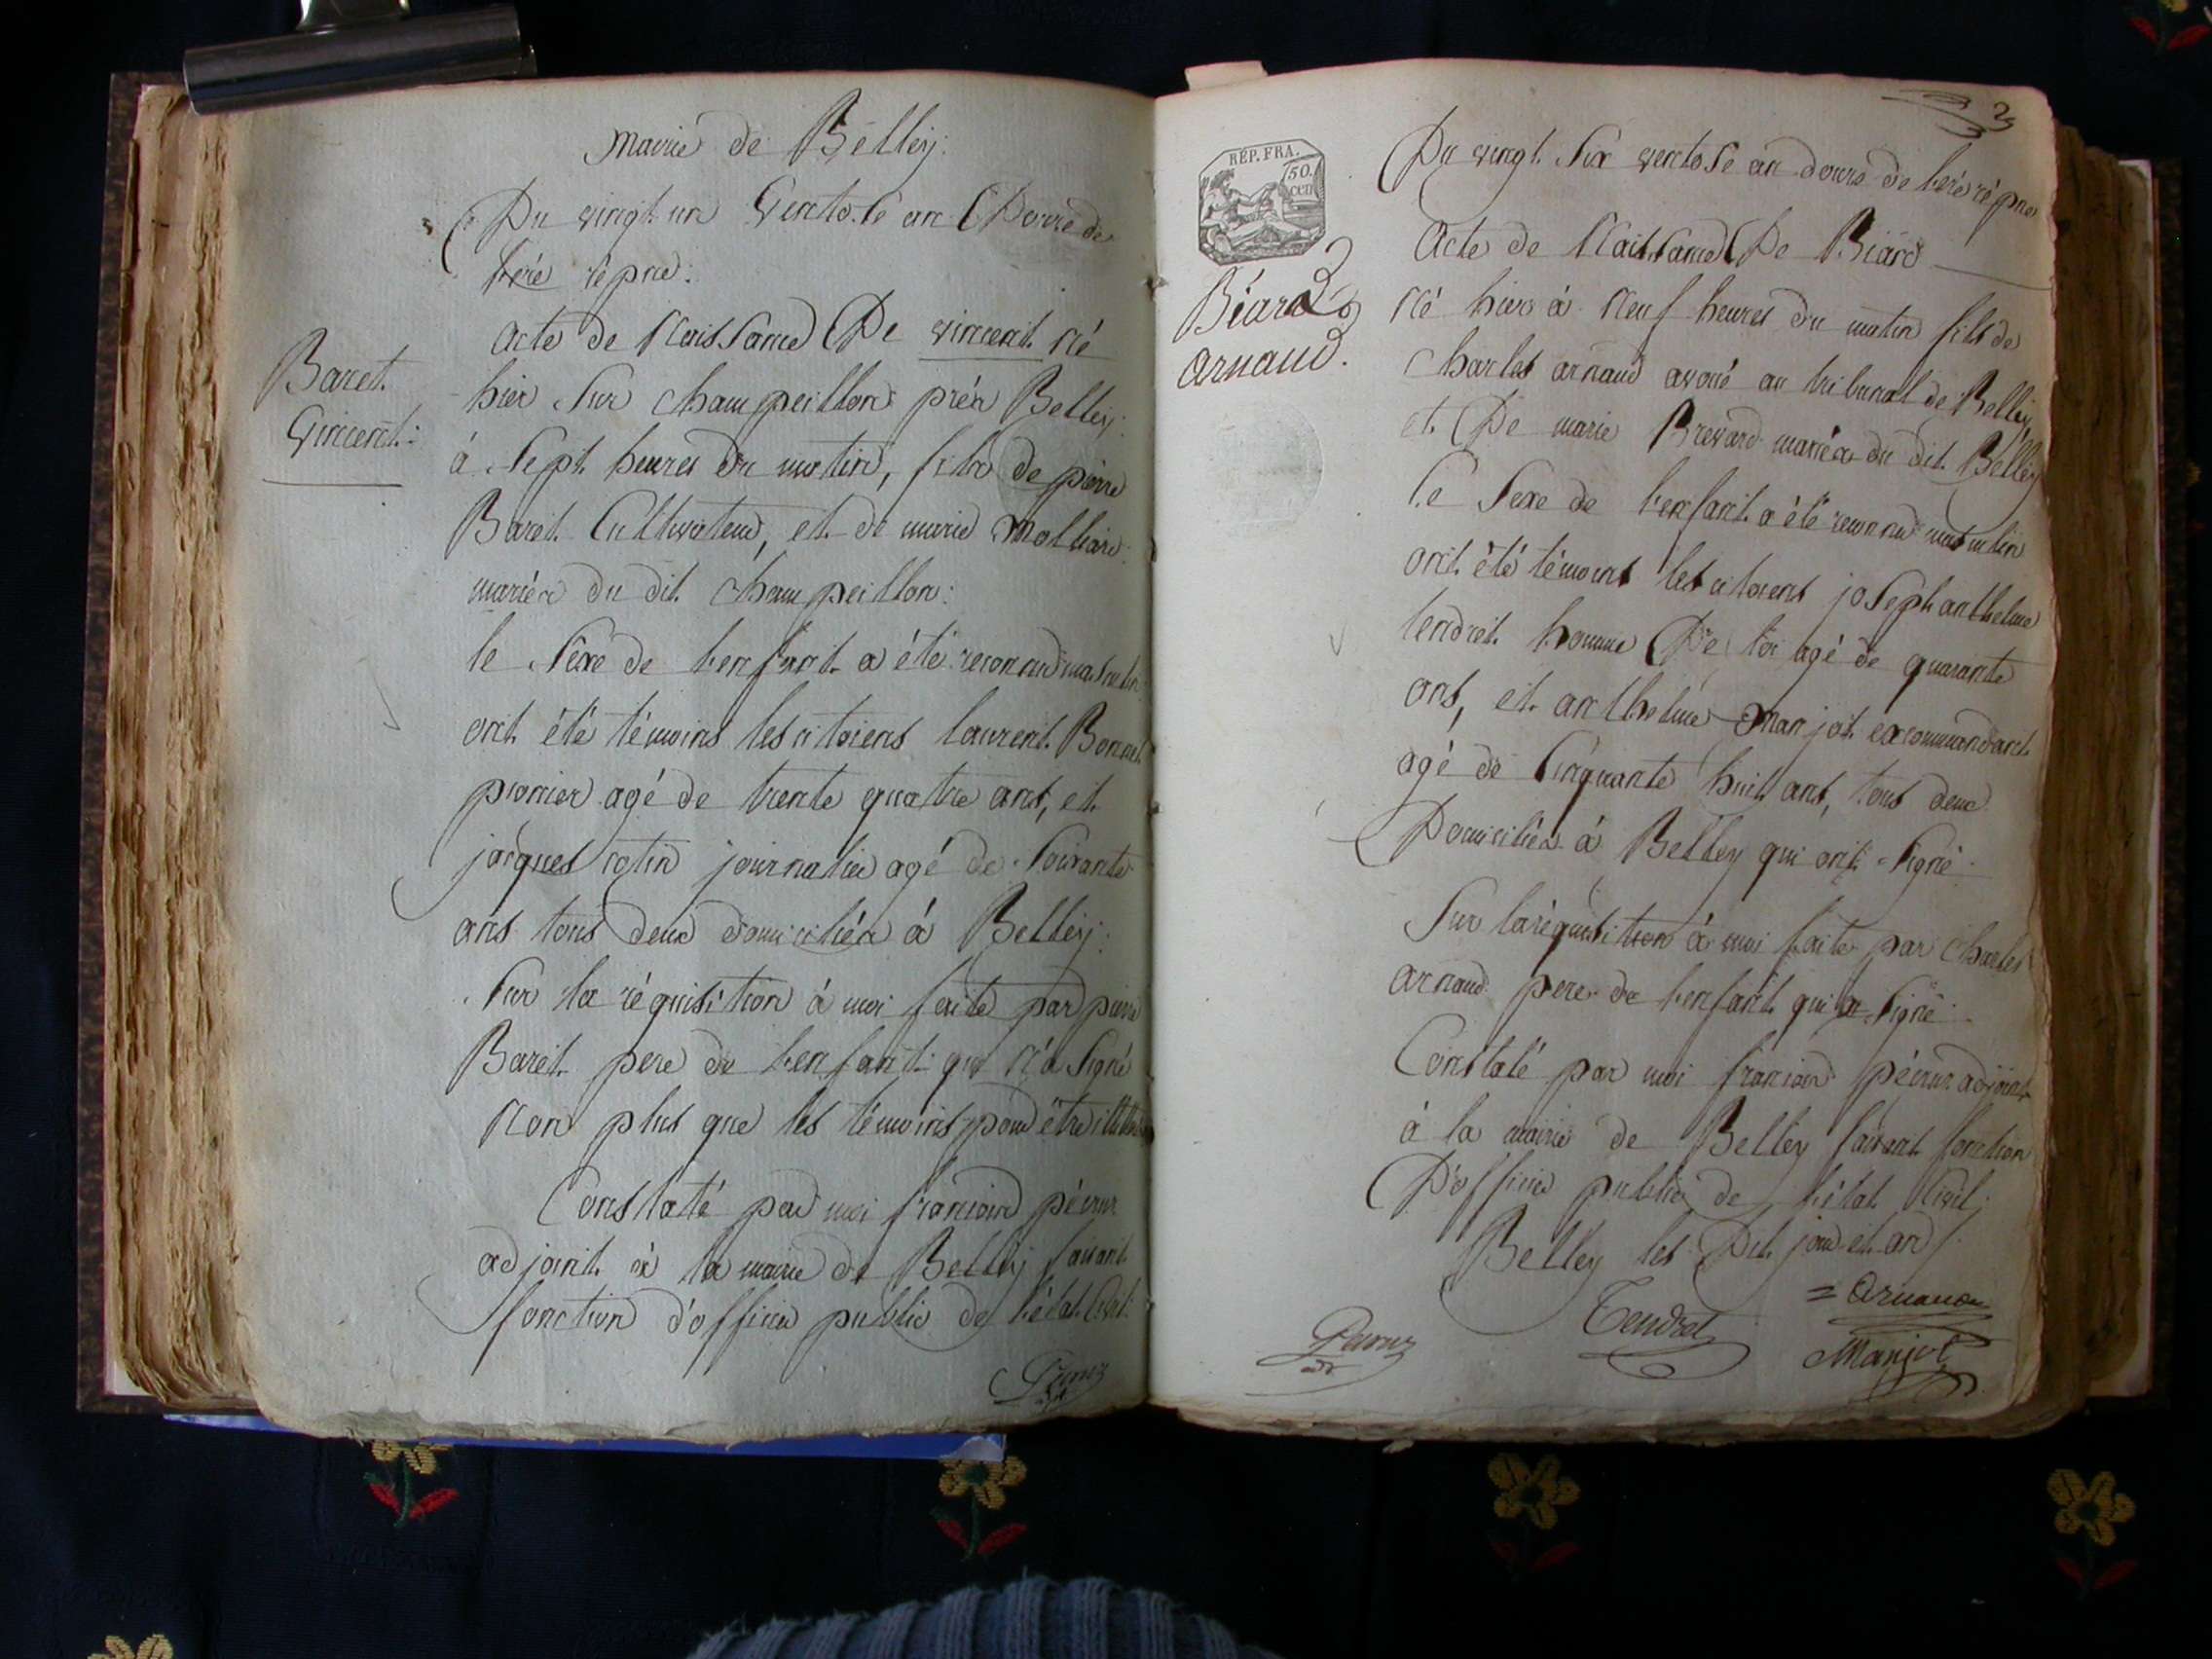 Mairie de Belley.
Du vingt un Ventose an Douze de
l'ère répne.
Baret
Vincent.
Acte de Naissance De vincent né
hier sur champeillon près Belley.
à Sept heures du matin, fils de pierre
Baret Cultivateur, et de marie Molliard
mariés du dit champeillon.
le Sexe de l'enfant a été reconnu masculin
ont été témoins les citoiens laurent Bonnet
agé de trente quatre ans, et
jacques journalier agé de Soixante
ans tous deux domiciliés à Belley.
Sur la réquisition à moi faite par pierre
Baret pere de l'enfant qui n'a Signé
Non plus que les témoins pour être illiterés
Constaté par moi françois péroux
adjoint à la mairie de Belley faisant
fonction d'officier public de l'état Civil.
2
RÉP. FRA.
50.
cen
Béard
arnaud.
Du vingt Six ventose an douze de l'ère répne
Acte de Naissance De Béard
né hier à neuf heures du matin fils de
Charles arnaud avoué au tribunal de Belley
et De marie Brevard mariés du dit Belley
le Sexe de l'enfant a été reconnu masculin
ont été témoins les citoiens joseph anthelme
tendret homme De loi agé de quarante
ans, et anthelme Manjot excommandant
agé de Cinquante huit ans, tous deux
Domiciliés à Belley qui ont Signé
Sur la réquisition à moi faite par Charles
arnaud pere de l'enfant qui a Signé.
Constaté par moi françois péroux adjoint
à la mairie de Belley faisant fonction
D'officier public de l'état Civil.
Belley les Dit jour et an
= Arnaud
Tendret
Manjot